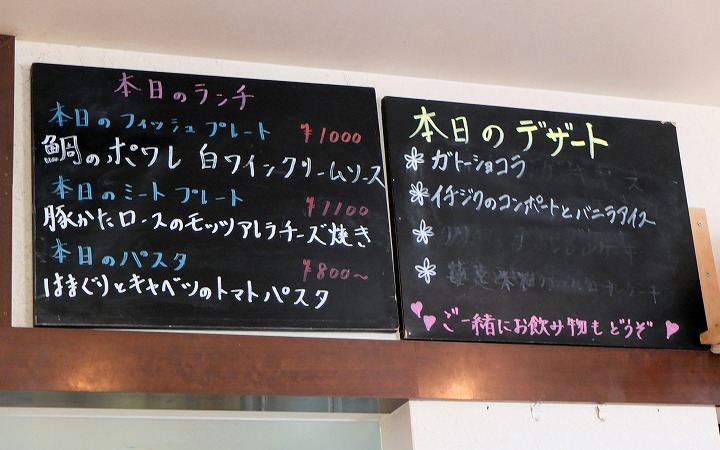 本日のランチ
本日のフィッシュプレート ¥1000
鯛のポワレ 白ワインクリームソース
本日のミートプレート ¥1100
豚かたロースのモッツアレラチーズ焼き
本日のパスタ ¥800〜
はまぐりとキャベツのトマトパスタ
本日のデザート
ガトーショコラ
イチジクのコンポートとバニラアイス
ご一緒にお飲み物もどうぞ